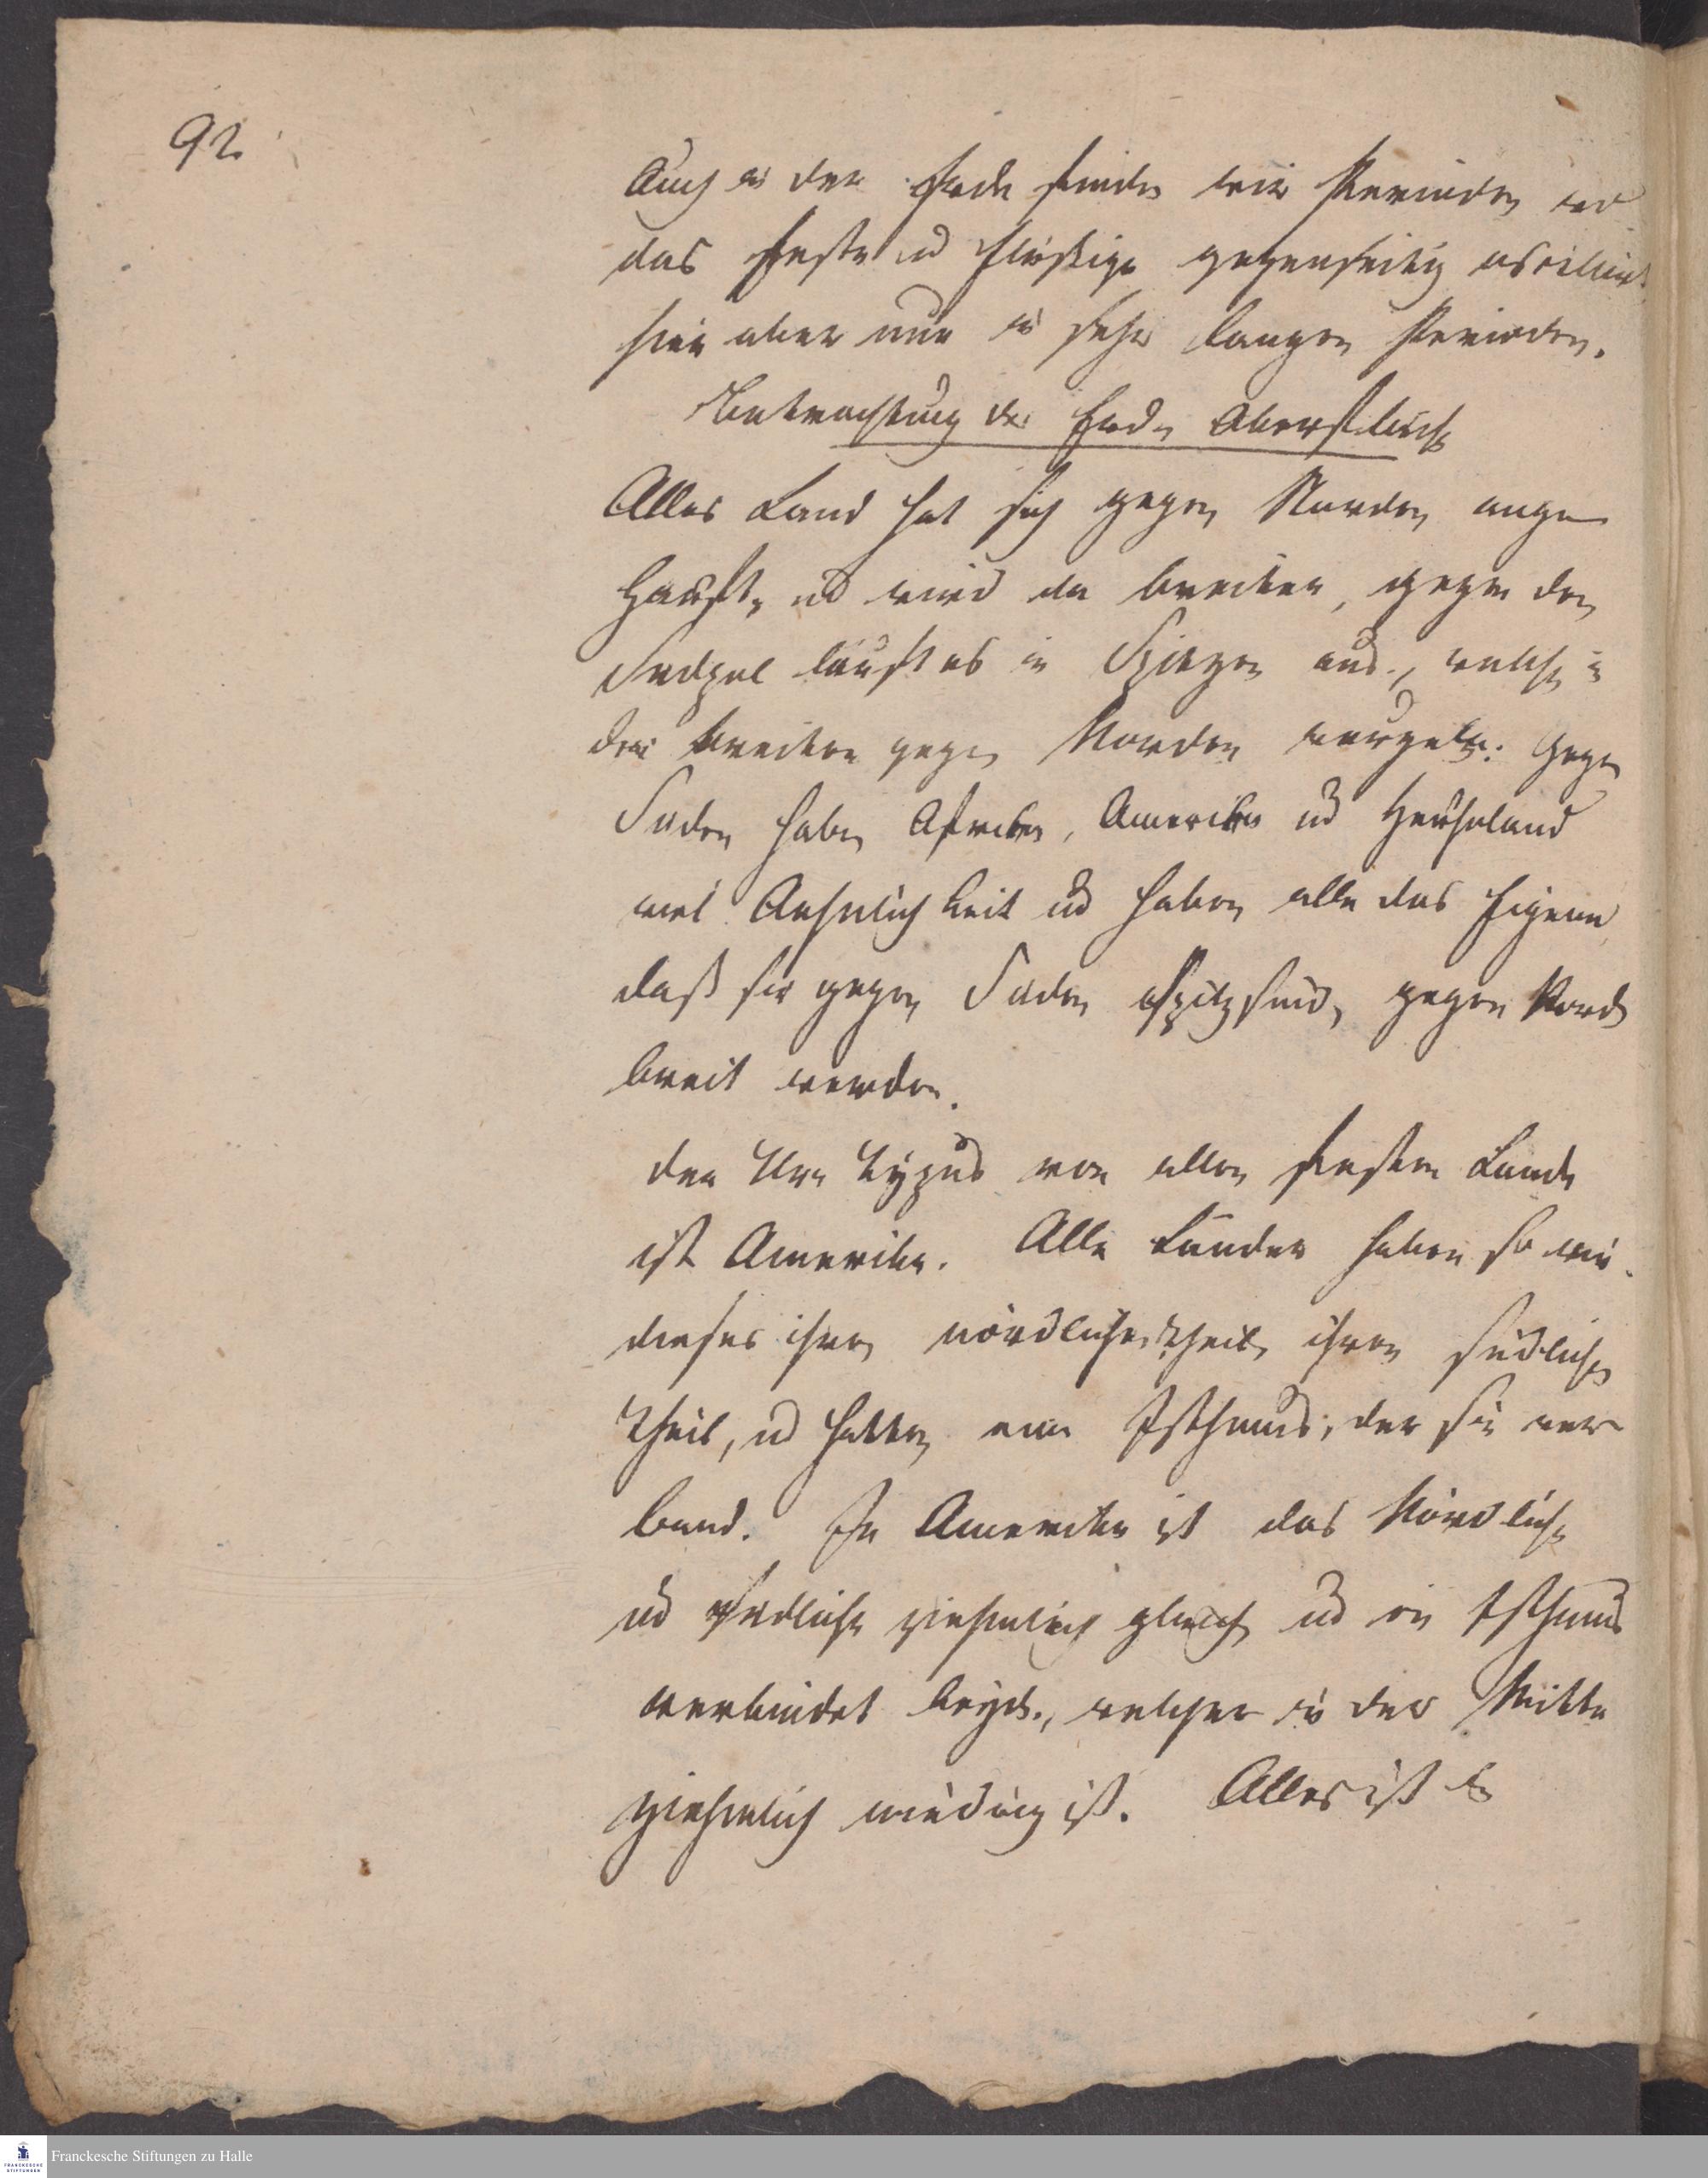 92.
Auch in der Erde finden wir Perioden wo
das Feste ud Flüßige gegenseitig oscillirt
hier aber nur in sehr langen Perioden.
Betrachtung der Erd Oberfläche
Alles Land hat sich gegen Norden ange
häuft, ud wird da breiter, gegen den
Südpol läuft es in Spitzen aus, welche in
der breiten gegen Norden
Gegen
Süden haben Afrika, Amerika ud Neuholand
viel Aehnlichkeit ud haben alle das Eigene
daß sie gegen Süden Spitz sind, gegen Nord
breit werden.
der Ur Typus von allen festen Lande
ist Amerika. Alle Länder haben so wie
dieses ihren nördlichen Theil, ihren südlichen
Theil, ud hatten einen Isthmus, der sie ver
band. In Amerika ist das Nördliche
ud südliche ziehmlich gleich ud ein Isthmus
verbindet beyde, welcher in der Mitte
ziehmlich niedrig ist. Alles ist
Franckesche Stiftungen zu Halle
FRANCKESCHE
STIFTUNGEN